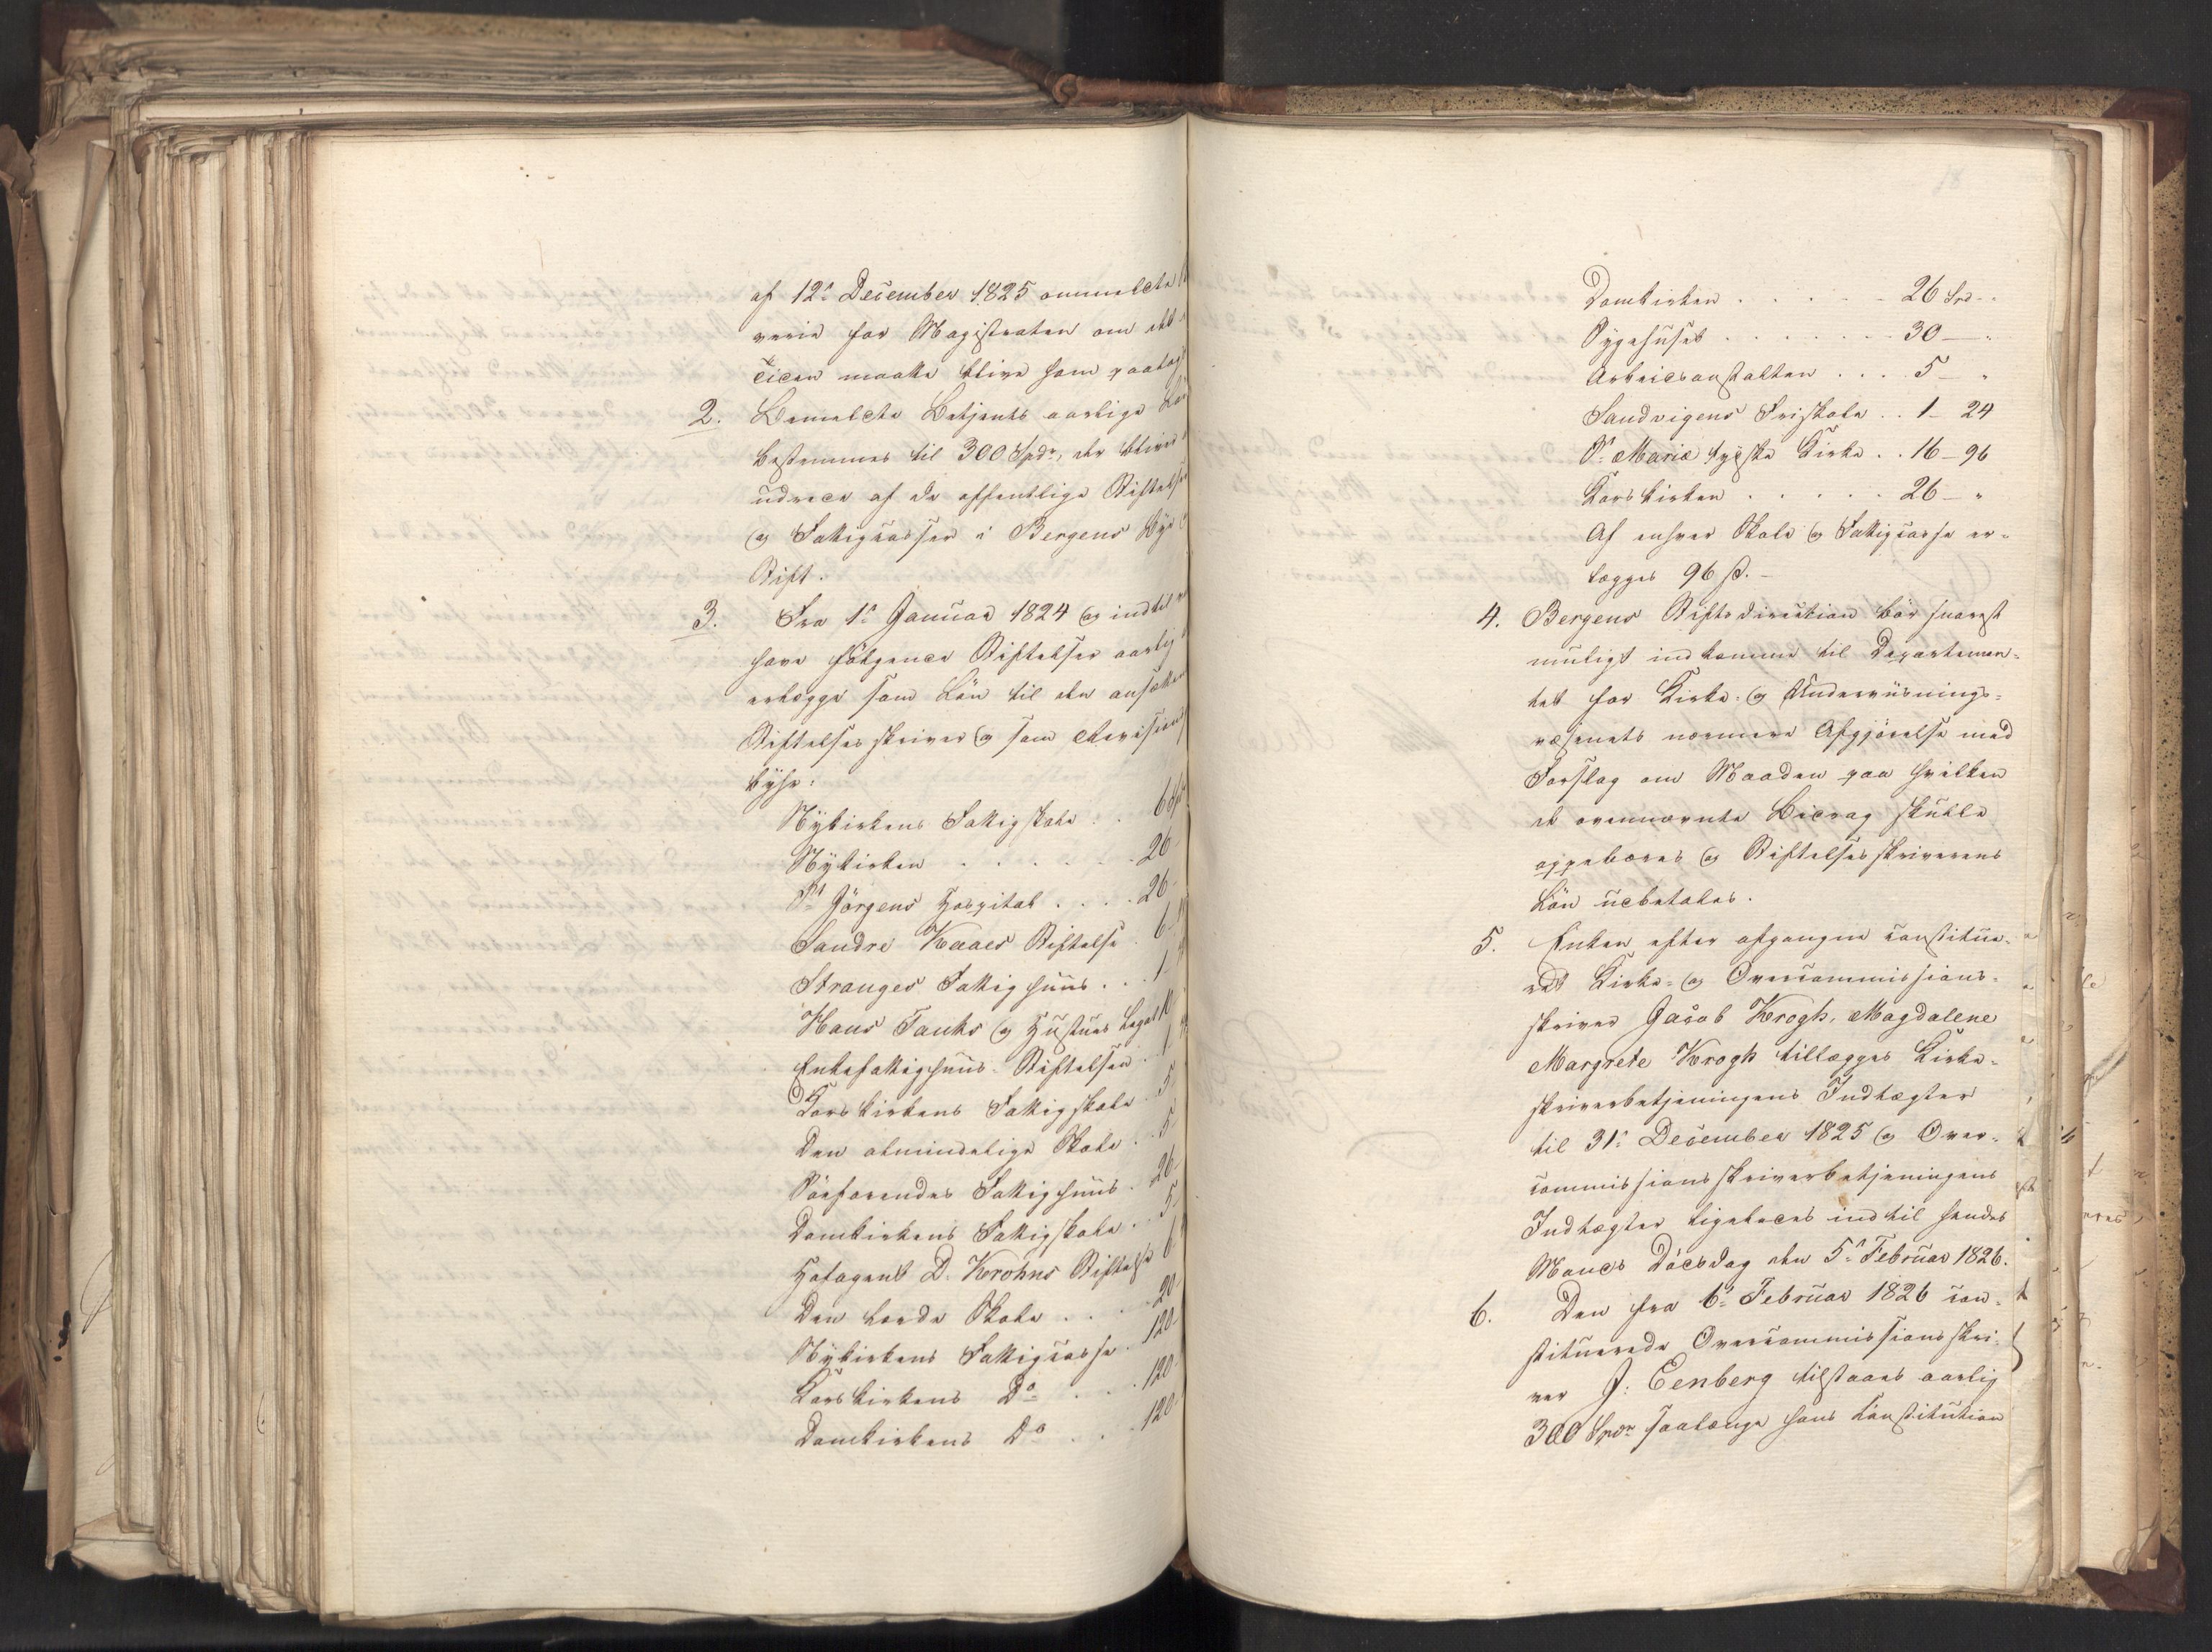 af 12te December 1825 ommeldte
vevie for Magistraten om det
ticen maatte blive ham paalagt
2. Bemeldte Betjents aarlige Løn
bestemmes til 300 Spdr, der bliver
udrede af de offentlige Stiftelser
og Fattigcasser i Bergens Bye
Stift.
3. Fra 1te Januar 1824 og indtil
have følgende Stiftelser aarlig
erlægge som Løn til den ansatte
Stiftelsesskriver og som Revisions
byhr:
Nykirkens Fattigskole . . 6
Nykirken . . . . . . 26
St Jørgens Hospital . . . . 26
Sandre Kaaes Stiftelse . 6
Stranges Fattighuus . . . 1
Hans Tanks og Hustrues Legat
Enkefattighuus-Stiftelsen . 1
Korskirkens Fattigskole 5
Den almindelige Skole . . 5
Søefarendes Fattighuus . 26
Domkirkens Fattigskole . . 5
Hofagent D. Krohns Stiftelse 6
Den lærde Skole . . . 20
Nykirkens Fattigcasse . 120
Korskirkens Do . . . 120
Domkirkens Do . . . 120
Domkirken . . . . . 26 Spd
Sygehuset . . . . . . . 30 — "
Arbeidsanstalten . . . . 5 — "
Sandvigens Friskole . . 1 — 24
St Mariæ tydske Kirke . . 16 — 96
Korskirken . . . . . 26 — "
Af enhver Skole og Fattigcasse er-
lægges 96 ß. —
4. Bergens Stiftsdirection bør snarest
muligt indkomme til Departemen-
tet for Kirke- og Underviisnings-
væsenets nærmere Afgjørelse med
Forslag om Maaden paa hvilken
de ovennævnte Bidrag skulle
oppebæres og Stiftelsesskriverens
Løn udbetales.
5. Enken efter afgangne constitue-
ret Kirke- og Overcommissions-
skriver Jacob Krogh, Magdalene
Margrete Krogh tillægges Kirke-
skriverbetjeningens Indtægter
til 31te December 1825 og Over-
commissionsskriverbetjeningens
Indtægter ligeledes indtil hendes
Mands Dødsdag den 5te Februar 1826.
6. Den fra 6te Februar 1826 con-
stituerede Overcommissionsskri-
ver J: Eenberg tilstaaes aarlig
300 Spdr saalænge hans Constitution